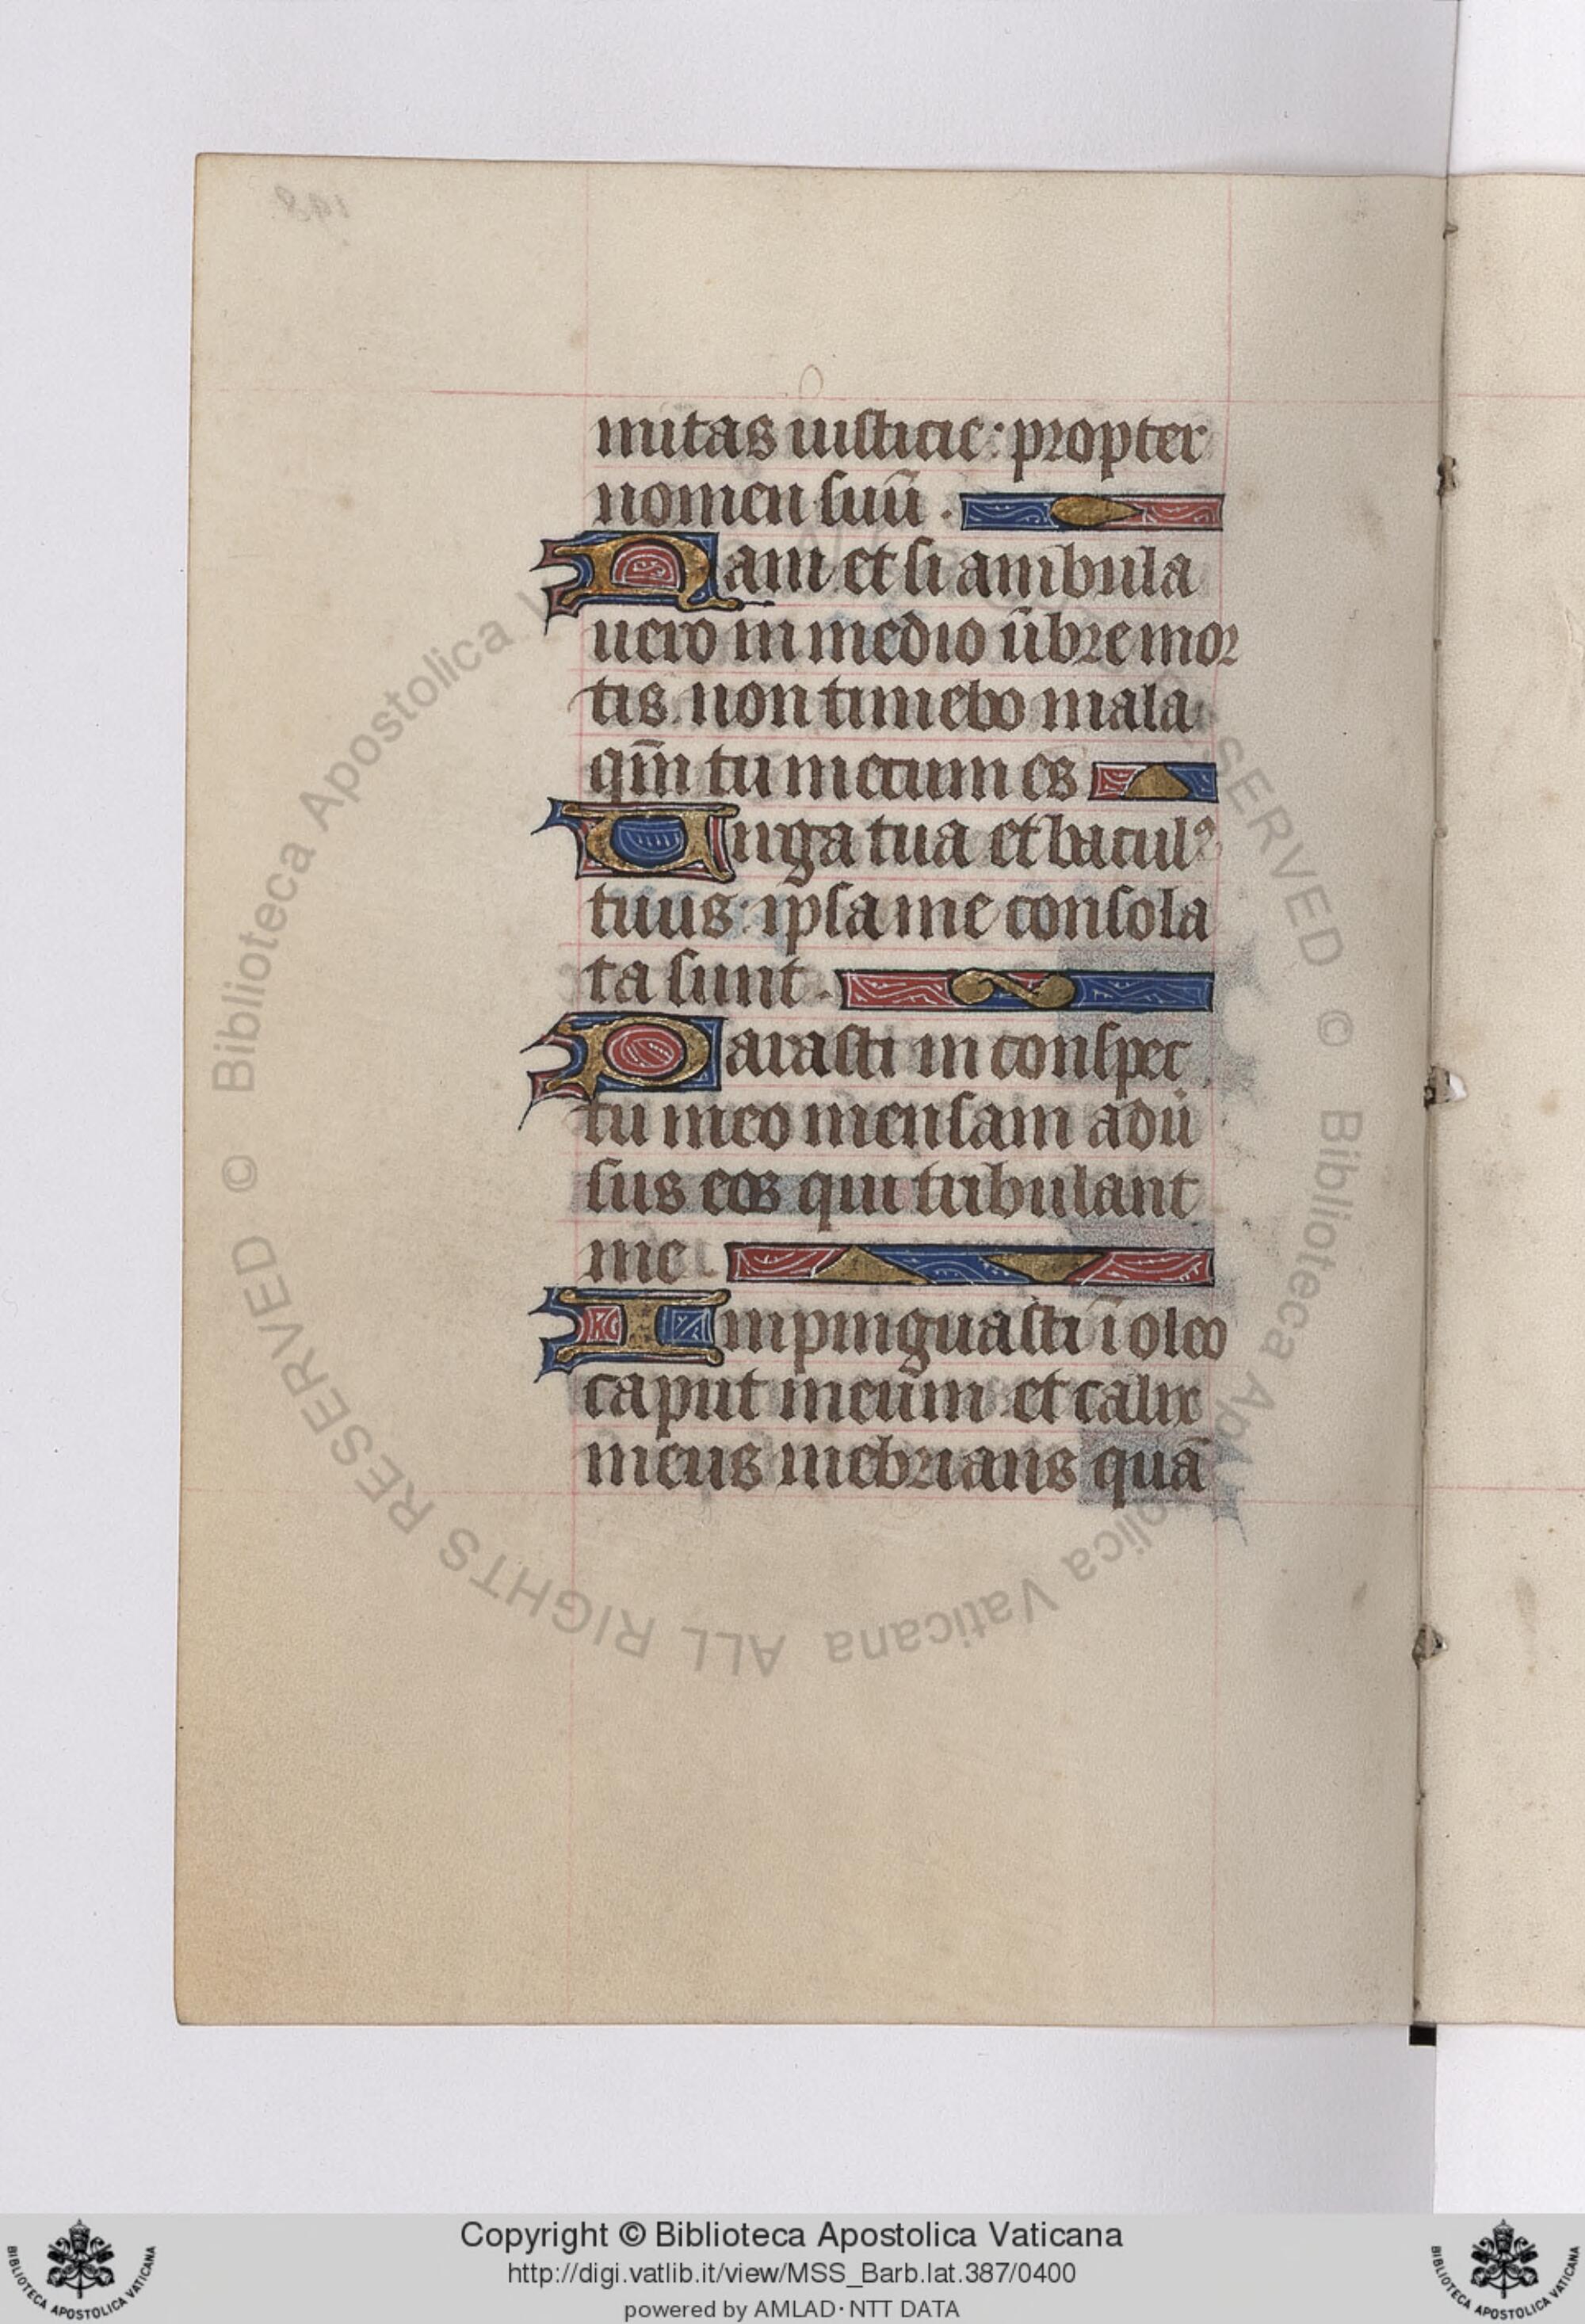 mitas iusticie: propter
nomen suū.
Nam et si ambula
uero in medio ūbre mor
tis non timebo mala
qm̄ tu mecum es
Uirga tua et baculꝰ
tuus: ipsa me consola
ta sunt.
Parasti in conspec
tu meo mensam adū
sus eos qui tribulant
me.
Impinguasti ī oleo
caput meum et calix
meus inebrians quā
© Biblioteca Apostolica Vaticana ALL RIGHTS RESERVED
Copyright © Biblioteca Apostolica Vaticana
http://digi.vatlib.it/view/MSS_Barb.lat.387/0400
powered by AMLAD·NTT DATA
BIBLIOTECA APOSTOLICA VATICANA
BIBLIOTECA APOSTOLICA VATICANA